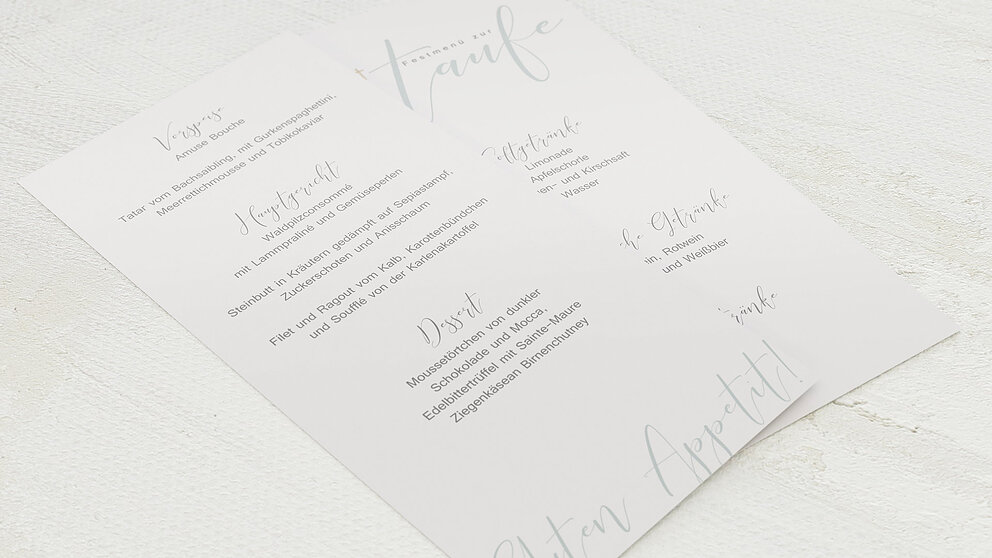 Vorspeise
Amuse Bouche
Tatar vom Bachsaibling, mit Gurkenspaghettini,
Meerrettichmousse und Tobikokaviar
Hauptgericht
Waldpilzconsommé
mit Lammpraliné und Gemüseperlen
Steinbutt in Kräutern gedämpft auf Sepiastampf,
Zuckerschoten und Anisschaum
Filet und Ragout vom Kalb, Karottenbündchen
und Soufflé von der Karlenakartoffel
Dessert
Moussetörtchen von dunkler
Schokolade und Mocca,
Edelbittertrüffel mit Sainte-Maure
Ziegenkäsean Birnenchutney
Guten Appetit!
Festmenü zur
Taufe
Limonade
Apfelschorle
und Kirschsaft
Wasser
Getränke
Rotwein
und Weißbier